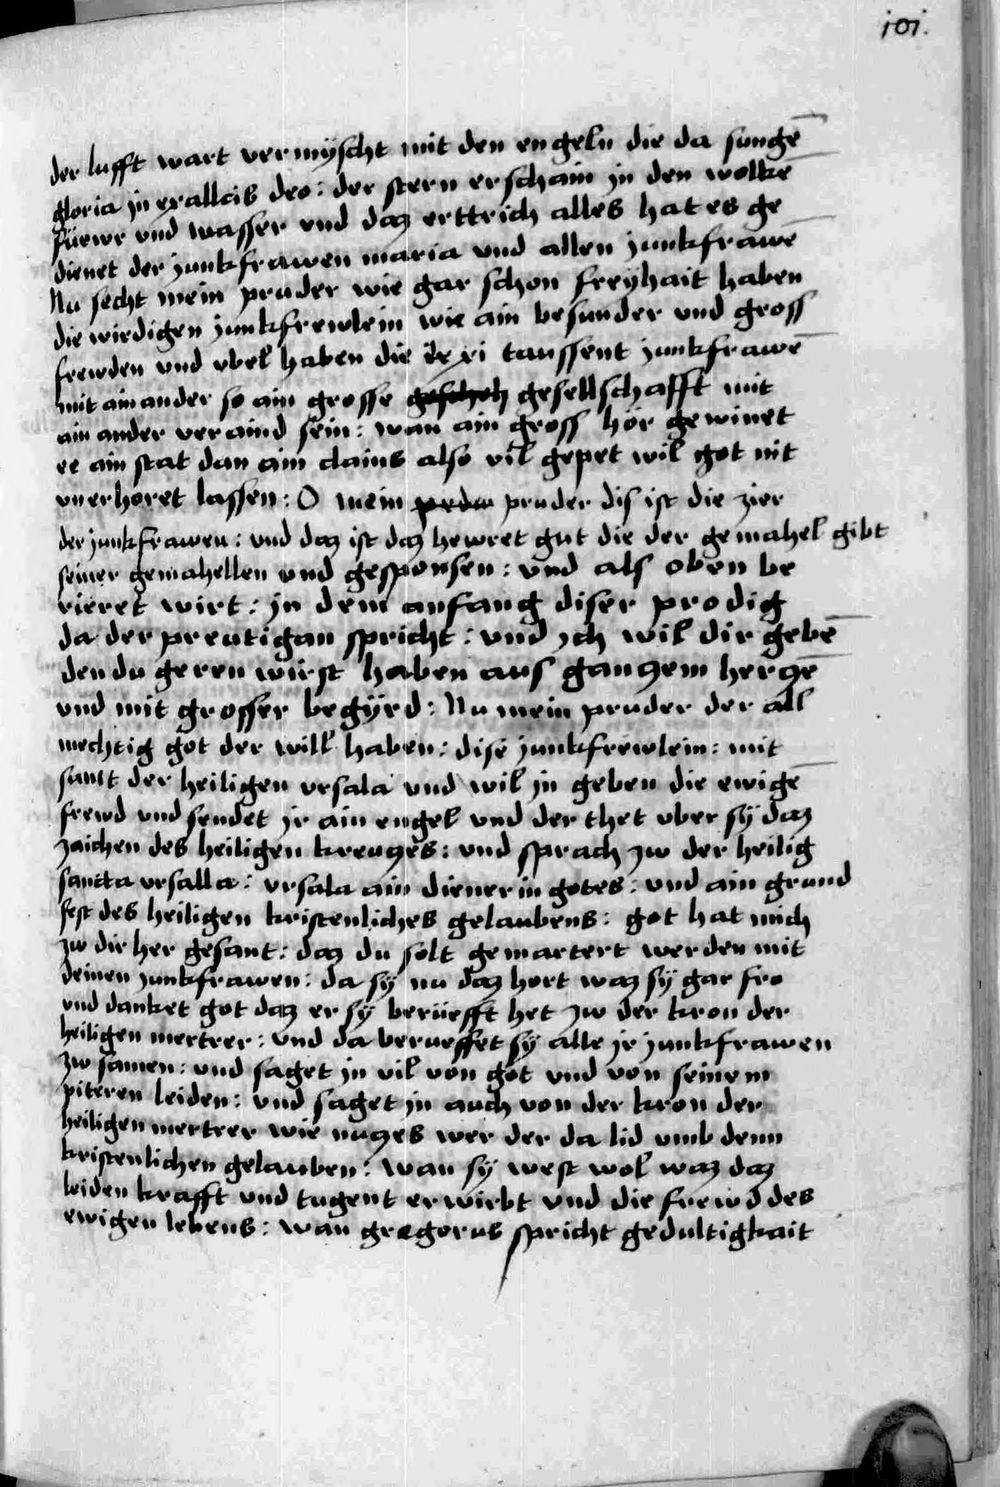 ioi.
der lufft wart vermyscht mit den engeln die da sungē
gloria in exallcis deo: der stern erschain jn den wolkē
füewr vnd wasser vnd daz erttrich alles hat es ge
dienet der junkfrawen maria vnd allen junkfrawē
Nu secht mein pruder wie gar schon freyhait haben
die wirdigen junkfrewlein wie ain besunder vnd gross
frewden vnd vbel haben die xi taussent junkfrawē
mit ain ander so ain grosse geschoh gesellschafft mit
ain ander veraind sein: wan ain gross hör gewinet
ee ain stat dan ain clains also vil gepet wil got nit
vnerhoret lassen: O mein prudr pruder dis ist die zier
der junkfrawen: vnd daz ist daz hewret gut die der gemahel gibt
seiner gemahellen vnd gesponsen: vnd als oben be
rieret wirt: jn dem anfang diser prodig
da der preutigan spricht: vnd jch wil dir gebē
den du geren wirst haben aus ganczem herczē
vnd mit grosser begÿrd: Nu mein pruder der all
mechtig got der will haben: dise junkfrewlein: mit
sant der heiligen vrsala vnd wil jn geben die ewigē
frewd vnd sendet jr ain engel vnd der thet vber sÿ daz
zaichen des heiligen kreuczes: vnd sprach zw der heilig
sancta vrsalla: vrsala ain dienerin gotes: vnd ain grund
fest des heiligen kristenliches gelaubens: got hat mich
zw dir her gesant: daz du solt gemartert werden mit
deinen junkfrawen: da sÿ nu daz hort waz sÿ gar fro
vnd danket got daz er sÿ berüefft het zw der kron der
heiligen mertrer: vnd da berueffet sÿ alle jr junkfrawen
zw samen: vnd saget jn vil von got vnd von seinem
piteren leiden: vnd saget jn auch von der kron der
heiligen mertrer wie nuczes wer der da lid vmb denn
kristenlichen gelauben: wan sÿ west wol waz daz
leiden krafft vnd tugent erwirbt vnd die frewd des
ewigen lebens: wan gregorus spricht gedultigkait